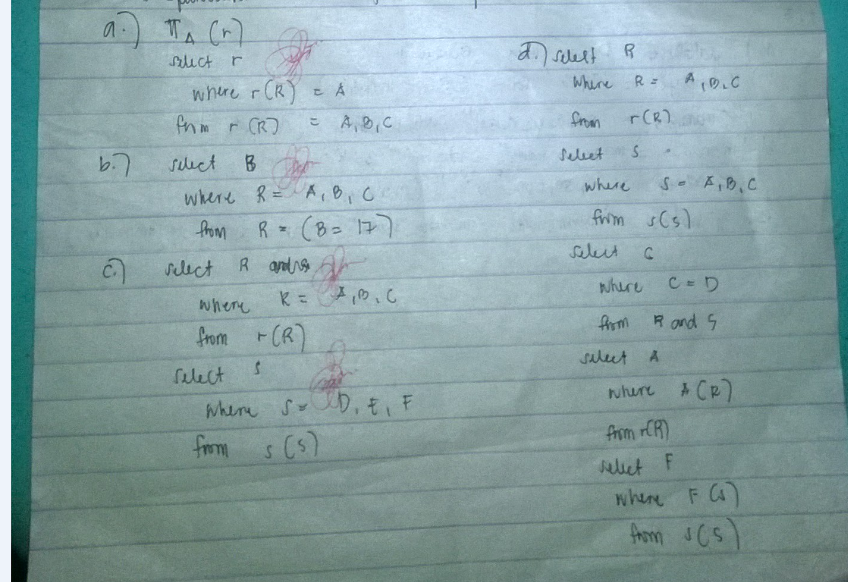 a.) π A (r)
select r
where r(R) = A
from r(R) = A, B, C
b.) select B
where R = A, B, C
from R = (B = 17)
c.) select R and s
where R = A, B, C
from r(R)
select s
where S = D, E, F
from s(S)
d.) select R
where R = A, B, C
from r(R)
select S
where S = A, B, C
from s(S)
select C
where C = D
from R and S
select A
where A(R)
from r(R)
select F
where F(s)
from s(S)